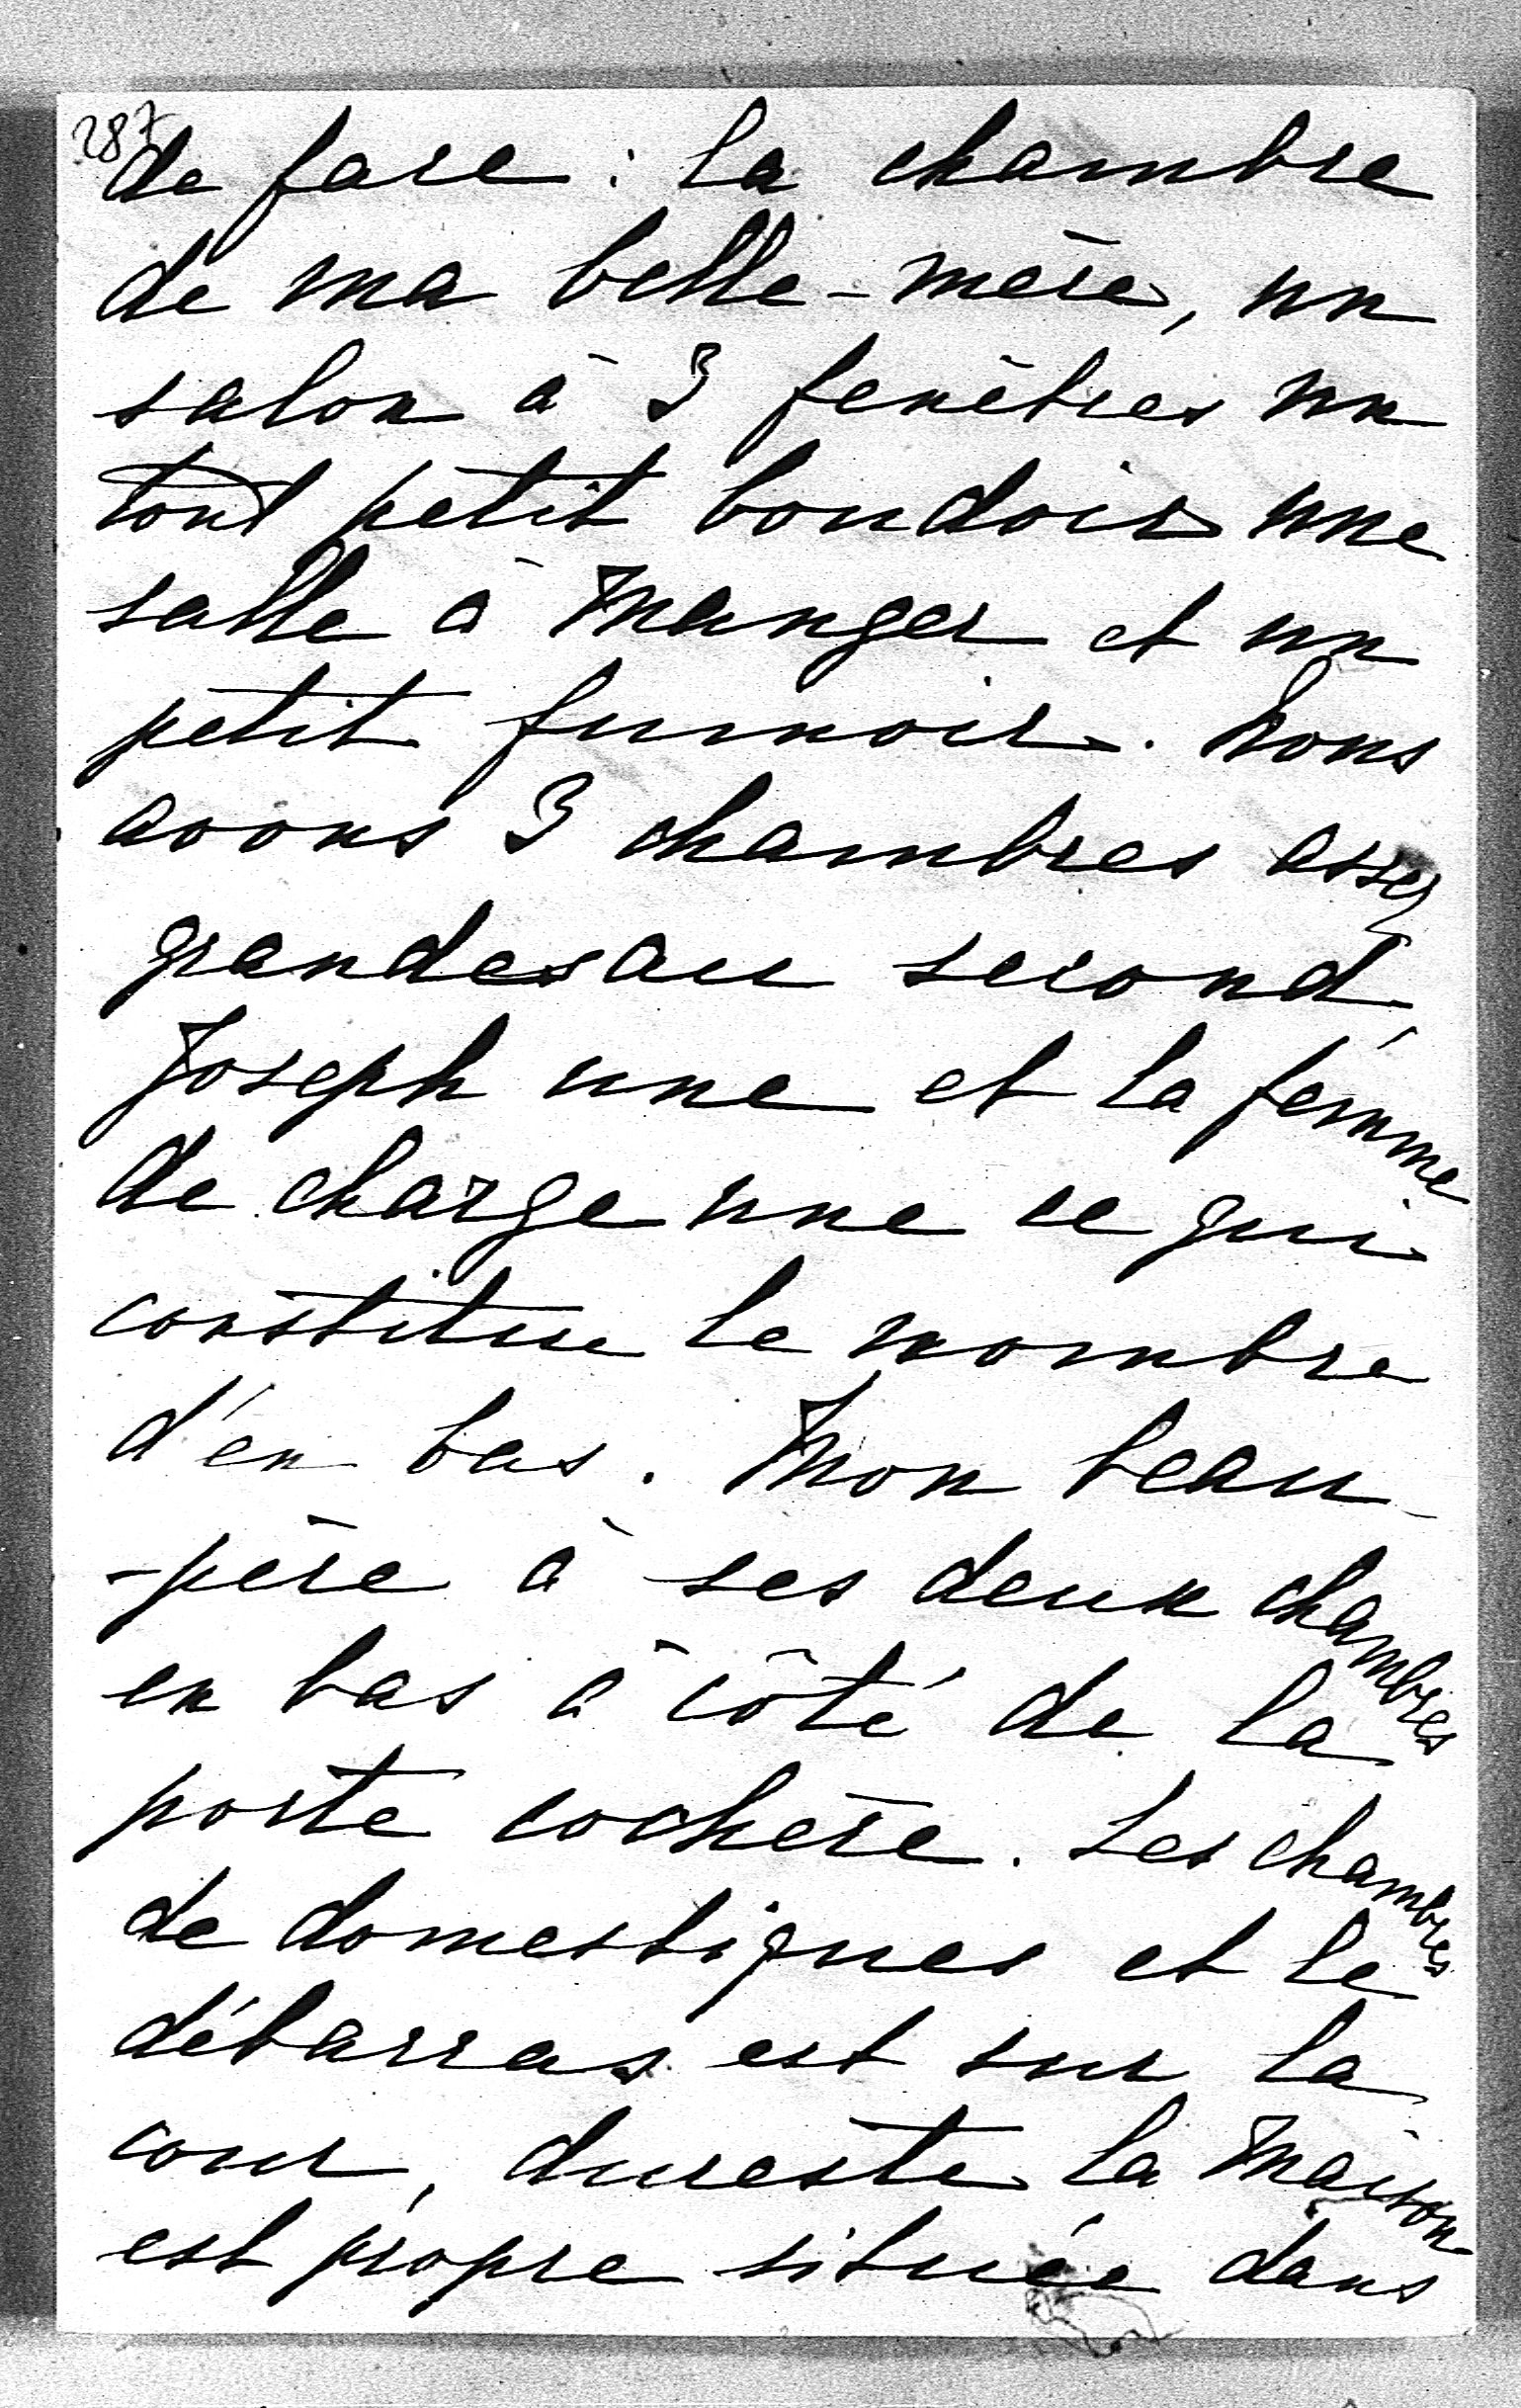 287
de face : la chambre
de ma belle-mère, un
salon à 3 fenêtres un
tout petit boudoir une
salle à manger et un
petit fumoir. Nous
avons 3 chambres assez
grandes au second,
Joseph une et la femme
de charge une ce qui
constitue le nombre
d'en bas. Mon beau-
-père à ses deux chambres
en bas à côté de la
porte cochère. Les chambres
de domestiques et le
débarras est sur la
cour, dureste la maison
est propre située dans